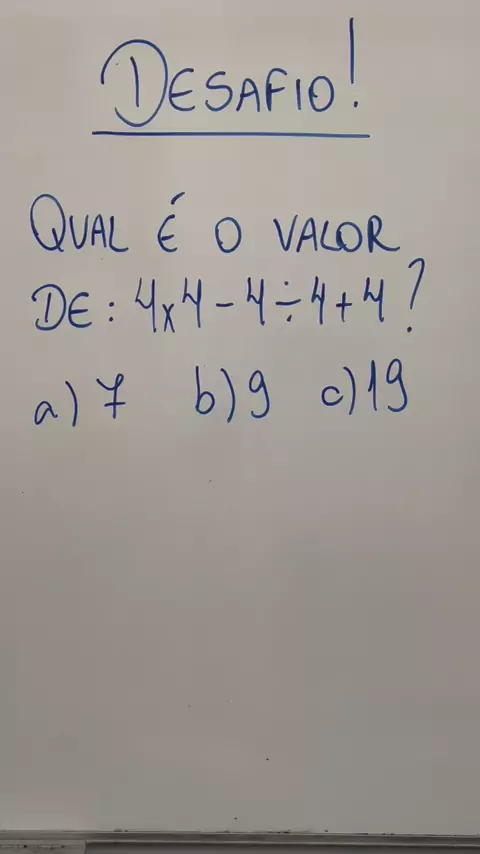 DESAFIO!
QUAL É O VALOR
DE: 4x4-4÷4+4?
a) 7 b) 9 c) 19